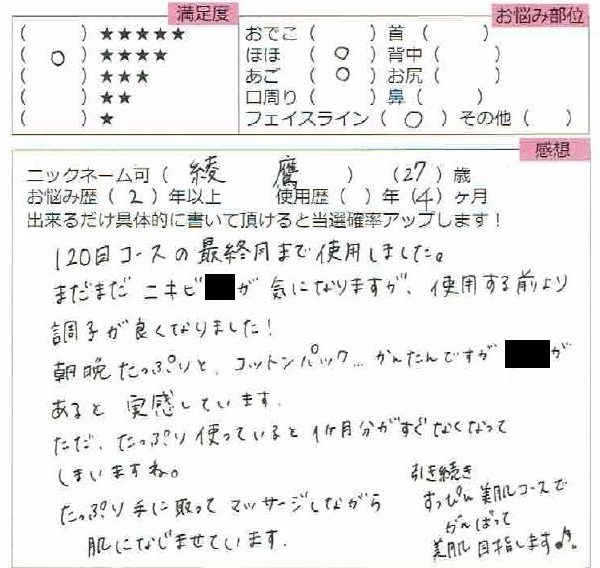 満足度
( ) ★★★★★
( ○ ) ★★★★
( ) ★★★
( ) ★★
( ) ★
お悩み部位
おでこ ( ) 首 ( )
ほほ ( ○ ) 背中 ( )
あご ( ○ ) お尻 ( )
口周り ( ) 鼻 ( )
フェイスライン ( ○ ) その他 ( )
感想
ニックネーム可 ( 綾 鷹 ) ( 27 ) 歳
お悩み歴 ( 2 ) 年以上 使用歴 ( ) 年 ( 4 ) ヶ月
出来るだけ具体的に書いて頂けると当選確率アップします!
120日コースの最終月まで使用しました。
まだまだ ニキビ が 気になりますが、使用する前より
調子が良くなりました!
朝晩たっぷりと、コットンパック… かんたんですが が
あると 実感しています.
ただ、たっぷり使っていると 1ヶ月分がすぐなくなって
しまいますね。
たっぷり手に取って マッサージしながら
肌になじませています.
引き続き
すっぴん美肌コースで
がんばって
美肌目指します♪!